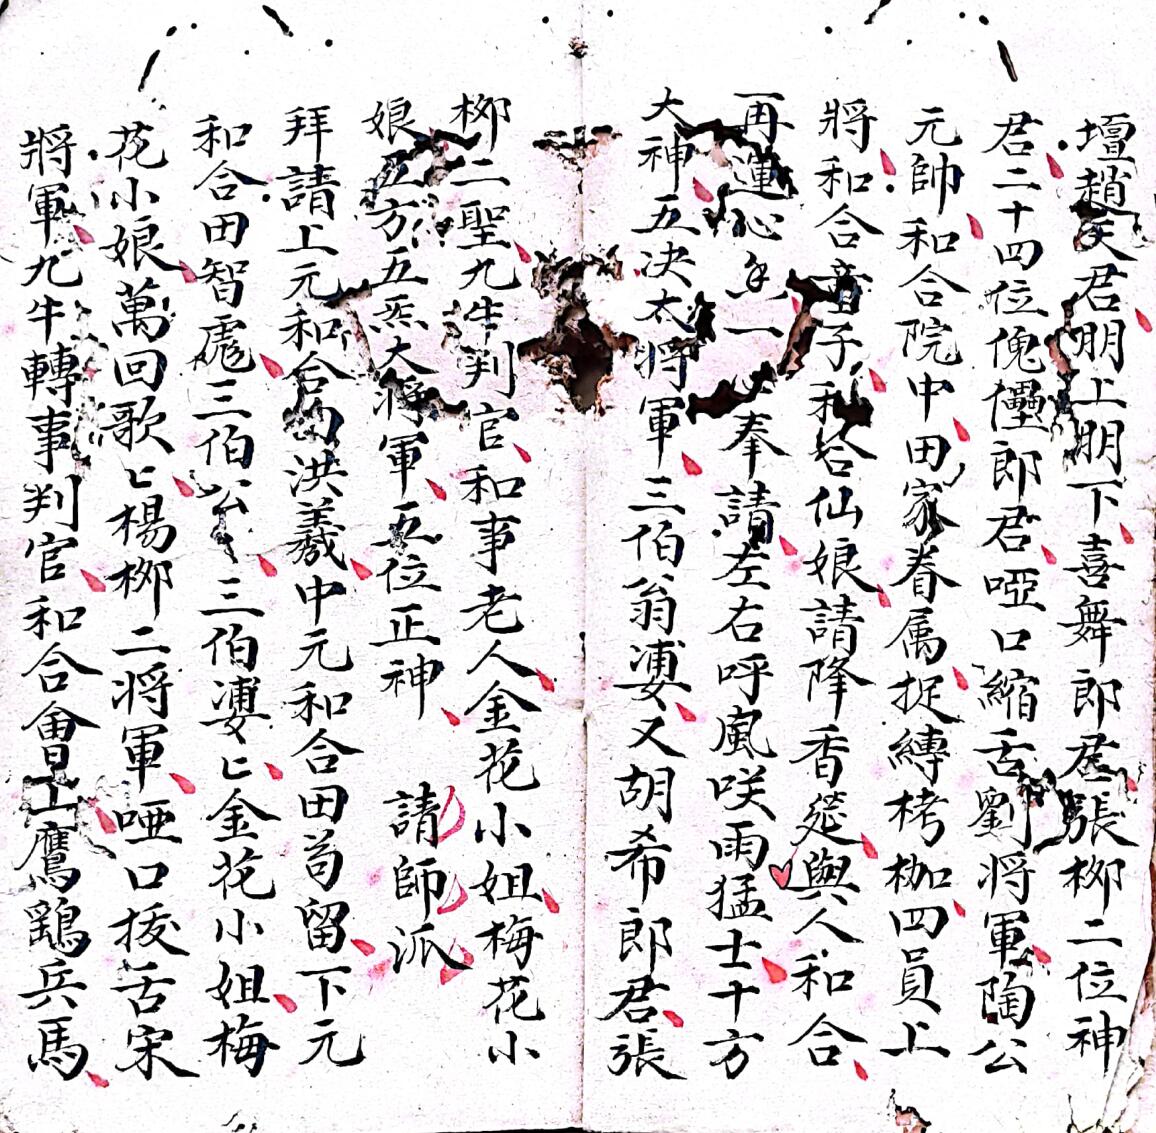 壇趙天君朋上朋下喜舞郎君張柳二位神
君二十四位傀儡郎君啞口縮舌劉将軍陶公
元帥和合院中田家眷属捉縛栲枷四員上
將和合童子和合仙娘請降香筵與人和合
再運心香一心奉請左右呼風咲雨猛士十方
大神五决太將軍三伯翁婆又胡希郎君張
柳二聖九牛判官和事老人金花小姐梅花小
娘五方五炁大將軍五位正神 請師派
拜請上元和合田洪義中元和合田苟留下元
和合田智彪三伯公三伯婆〻金花小姐梅
花小娘萬回歌〻楊柳二将軍啞口拔舌宋
將軍九牛轉事判官和合會上鷹鷂兵馬